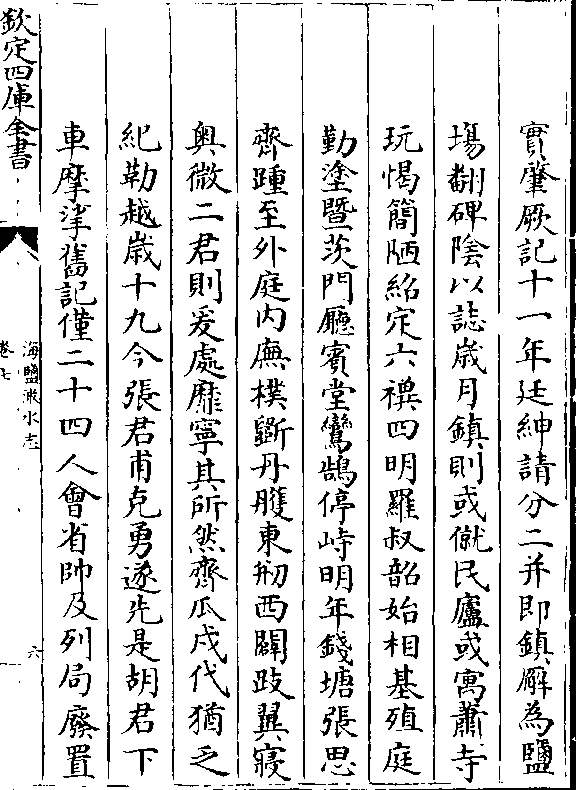 實肇厥記十一年廷紳請分二并即鎮廨為鹽
塲翻碑隂以誌歳月鎮則或僦民廬或寓蕭寺
玩愒簡陋紹定六禩四明羅叔韶始相基殖庭
勤塗暨茨門廳賓堂鸞鵠停峙明年錢塘張思
齊踵至外庭内廡樸斵丹雘東剏西闢跂翼寢
奥微二君則爰處靡寧其所然齊瓜戍代猶乏
紀勒越歳十九今張君甫克勇遂先是胡君下
車摩挲舊記僅二十四人會省帥及列局廢置
欽定四庫全書
海鹽澉水志
卷七
六